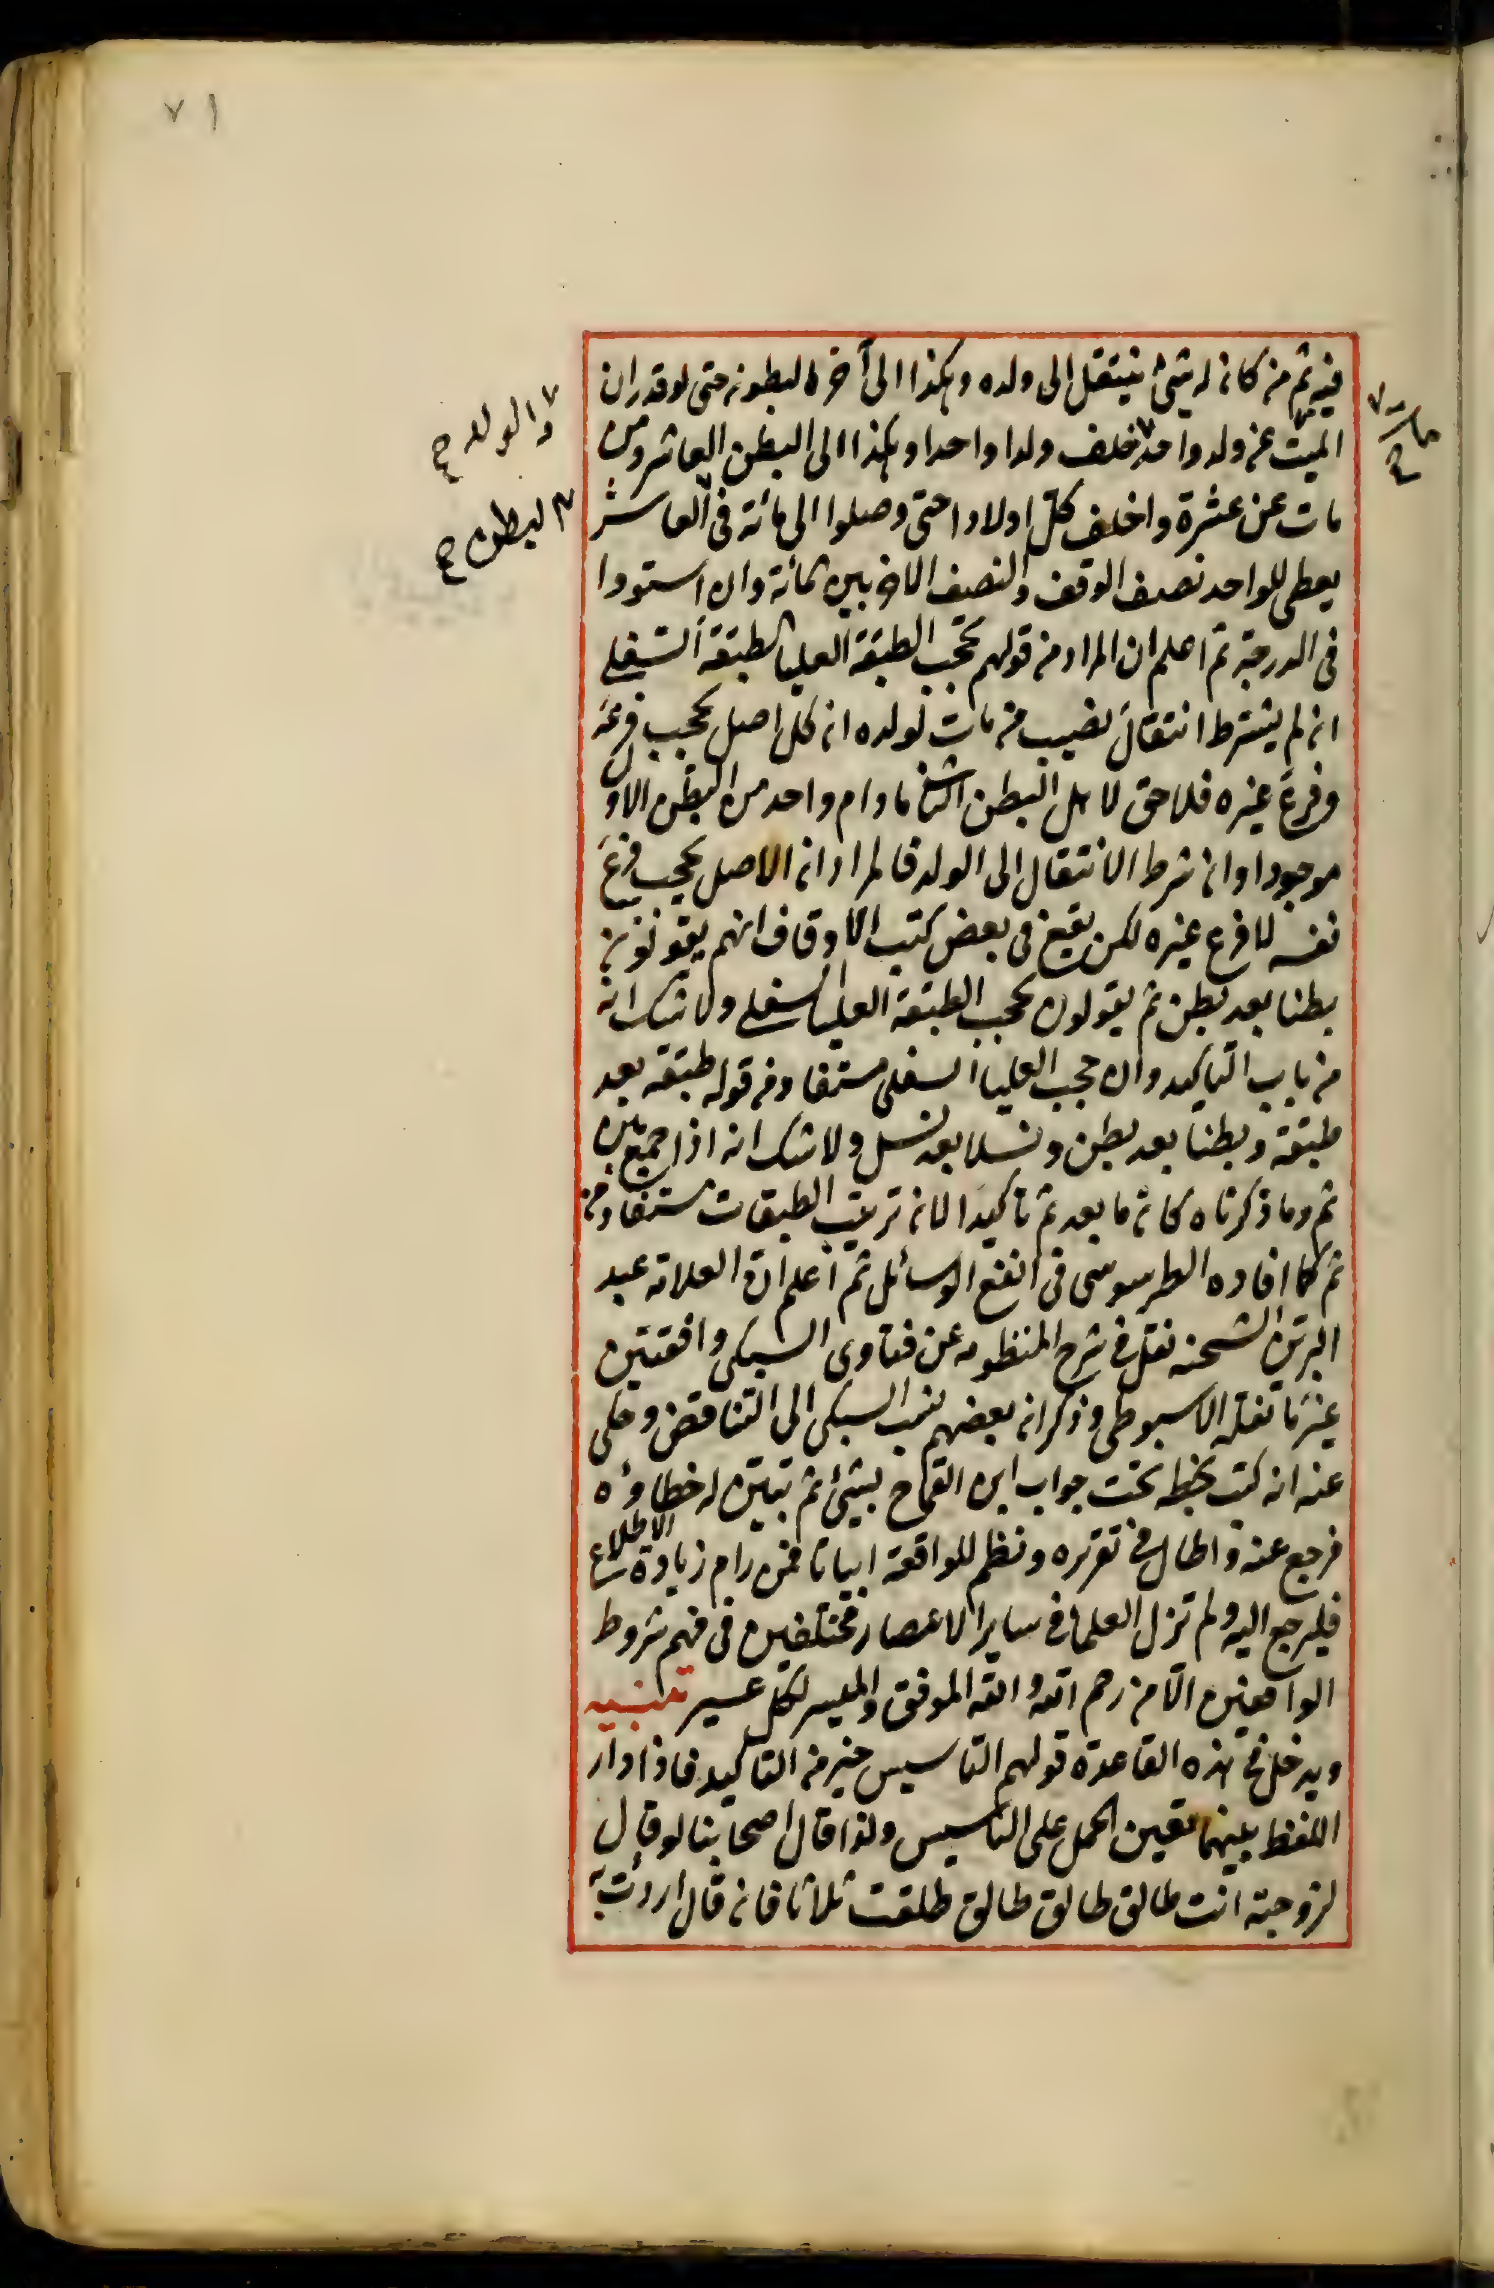 ٧١
فيه ثم من كان له شيئ ينتقل الى ولده وهكذا الى آخر البطون حتى لو قدر ان
الميت عن ولد واحد خلف ولدا واحدا وهكذا الى البطن العاشر ومن
مات عن عشرة واخلف كل اولادا حتى وصلوا الى مائة فى العاشر
يعطى للواحد نصف الوقف والنصف الاخر بين مائة وان استووا
فى الدرجة ثم اعلم ان المراد من قولهم تحجب الطبقة العليا الطبقة السفلى
انه لم يشترط انتقال نصيب من مات لولده ان كل اصل يحجب فرعه
وفرع غيره فلا حق لاهل البطن الثانى ما دام واحد من البطن الاول
موجودا وان شرط الانتقال الى الولد فالمراد ان الاصل يحجب فرع
نفسه لا فرع غيره لكن يقع فى بعض كتب الاوقاف انهم يقولون
بطنا بعد بطن ثم يقولون تحجب الطبقة العليا السفلى ولا شك انه
من باب التاكيد وان حجب العليا السفلى مستفاد من قوله طبقة بعد
طبقة وبطنا بعد بطن ونسلا بعد نسل ولا شك انه اذا جمع بين
ثم وما ذكرناه كان ما بعد ثم تاكيدا لان ترتيب الطبقات مستفاد من
ثم كما افاده الطرسوسى فى انفع الوسائل ثم اعلم ان العلامة عبد
البر بن الشحنه نقل فى شرح المنظومه عن فتاوى السبكى واقعتين
غير ما نقله الاسيوطى وذكر ان بعضهم نسب السبكى الى التناقض وحكى
عنه انه كتب بخطه تحت جواب ابن القماح بشيئ ثم تبين له خطاؤه
فرجع عنه واطال فى تقريره ونظم للواقعة ابياتا فمن رام زيادة الاطلاع
فليرجع اليه ولم تزل العلما فى ساير الاعصار مختلفين فى فهم شروط
الواقفين الا من رحم الله والله الموفق والميسر لكل عسير تنبيه
ويدخل فى هذه القاعدة قولهم التاسيس خير من التاكيد فاذا دار
اللفظ بينهما تعين الحمل على التاسيس ولذا قال اصحابنا لو قال
لزوجته انت طالق طالق طالق طلقت ثلاثا فان قال اردت به
والولد صح
البطن صح
مات صح